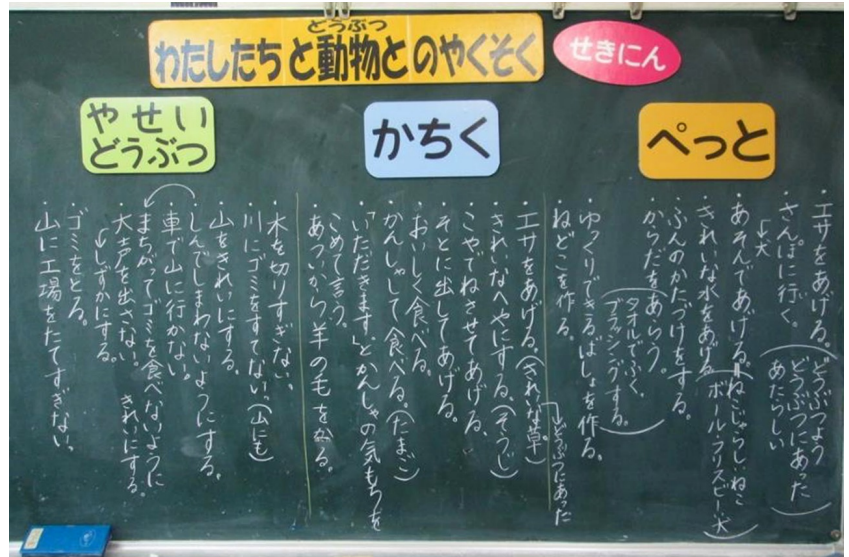 わたしたちと動物とのやくそく
どうぶつ
せきにん
ぺっと
・エサをあげる。
（どうぶつよう
どうぶつにあった
あたらしい）
・さんぽに行く。
↳犬
・あそんであげる。
ねこじゃらし、ねこ
ボール・フリスビー、犬
・きれいな水をあげる
・ふんのかたづけをする。
・からだをあらう。
（タオルでふく。
ブラッシングする。）
・ゆっくりできるばしょを作る。
・ねどこを作る。
かちく
・エサをあげる。（きれいな草）
→どうぶつにあった
・きれいなへやにする。（そうじ）
・こやでねさせてあげる、
・そとに出してあげる。
・おいしく食べる。
・かんしゃして食べる。（たまご）
・「いただきます。」とかんしゃの気もちを
こめて言う。
・あついから羊の毛を
る。
やせい
どうぶつ
・木を切りすぎない。
・川にゴミをすてない。（山にも）
・山をきれいにする。
・しんでしまわないようにする。
・車で山に行かない。
・まちがってゴミを食べないように
きれいにする。
・大声を出さない。
↳しずかにする。
・ゴミをとる。
・山に工場をたてすぎない。